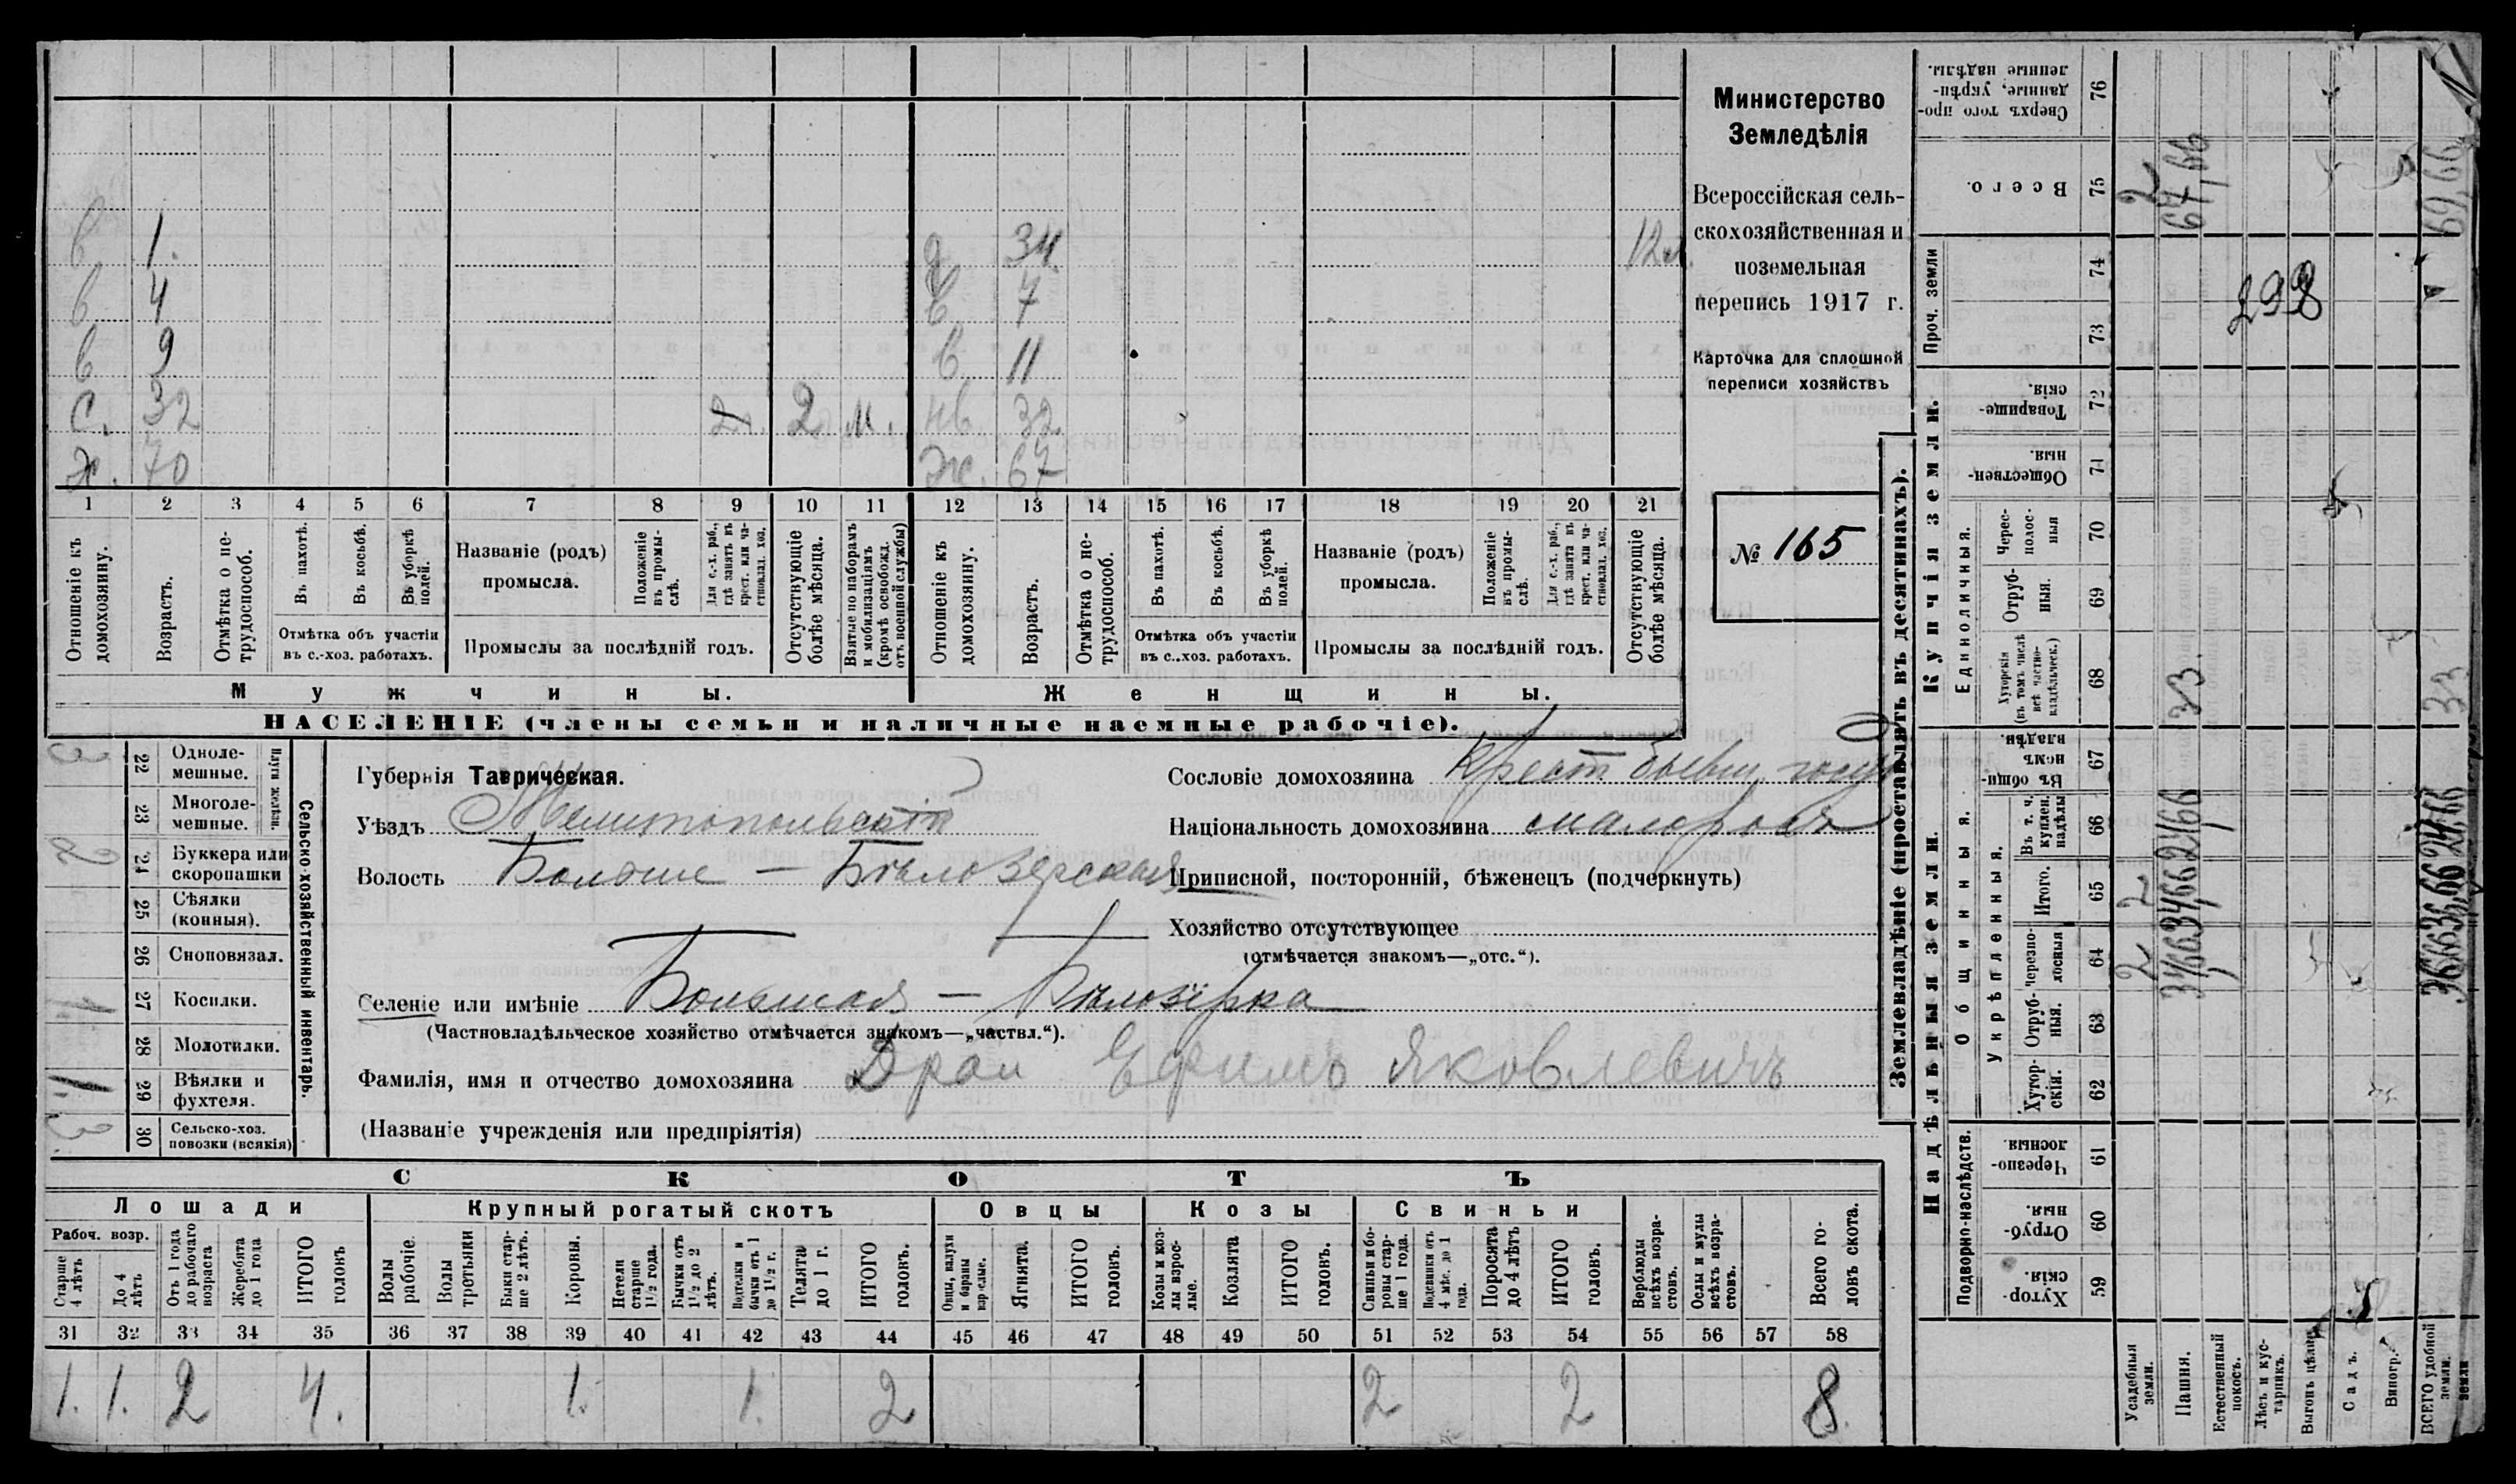 Министерство
Земледѣлія
Всероссійская сель-
скохозяйственная и
поземельная
перепись 1917 г.
Карточка для сплошной
переписи хозяйствъ
№ 165
в 1. 34 12
в 4 в 7
в 9 в 11
с. 32 2 м. нв. 32
х. 70 ж. 67
1 2 3 4 5 6 7 8 9 10 11 12 13 14 15 16 17 18 19 20 21
Отношеніе къ домохозяину.
Возрастъ.
Отмѣтка о не-трудоспособ.
Въ пахотѣ.
Въ косьбѣ.
Въ уборкѣ полей.
Отмѣтка объ участіи
въ с.-хоз. работахъ.
Названіе (родъ)
промысла.
Положеніе въ промы-слѣ.
Для с.-х. раб., гдѣ занятъ въ крест. или ча-стновлад. хоз.
Промыслы за послѣдній годъ.
Отсутствующіе болѣе мѣсяца.
Взятые по наборамъ и мобилизаціямъ (кромѣ освобожд. отъ военной службы)
Отношеніе къ домохозяину.
Возрастъ.
Отмѣтка о не-трудоспособ.
Въ пахотѣ.
Въ косьбѣ.
Въ уборкѣ полей.
Отмѣтка объ участіи
въ с.-хоз. работахъ.
Названіе (родъ)
промысла.
Положеніе въ промы-слѣ.
Для с.-х. раб., гдѣ занята въ крест. или ча-стновлад. хоз.
Промыслы за послѣдній годъ.
Отсутствующіе болѣе мѣсяца.
Мужчины. Женщины.
НАСЕЛЕНІЕ (члены семьи и наличные наемные рабочіе).
Сельско-хозяйственный инвентарь.
Плуги желѣзн.
22 Одноле-мешные.
23 Многоле-мешные.
24 Буккера или скоропашки
25 Сѣялки (конныя).
26 Сноповязал.
27 Косилки. 1
28 Молотилки.
29 Вѣялки и фухтеля. 1
30 Сельско-хоз. повозки (всякія) 3
Губернія Таврическая.
Уѣздъ Мелитопольскій
Волость Больше — Бѣлозерская
Селеніе или имѣніе Большая — Бѣлозёрка
(Частновладѣльческое хозяйство отмѣчается знакомъ—„частвл.“).
Фамилія, имя и отчество домохозяина Драл Ефимъ Яковлевичъ
(Названіе учрежденія или предпріятія)
Сословіе домохозяина Крест бывш. госуд
Національность домохозяина малороссъ
Приписной, посторонній, бѣженецъ (подчеркнуть)
Хозяйство отсутствующее
(отмѣчается знакомъ—„отс.“).
СКОТЪ
Лошади Крупный рогатый скотъ Овцы Козы Свиньи
Рабоч. возр.
Старше 4 лѣтъ
До 4 лѣтъ
Отъ 1 года до рабочаго возраста
Жеребята до 1 года
ИТОГО головъ
Волы рабочіе.
Волы третьяки
Быки стар-ше 2 лѣтъ.
Коровы.
Нетели старше 1½ года.
Бычки отъ 1½ до 2 лѣтъ.
Подтелки и бычки отъ 1 до 1½ г.
Телята до 1 г.
ИТОГО головъ.
Овцы, валухи и бараны взрослые.
Ягнята.
ИТОГО головъ.
Козы и коз-лы взрос-лые.
Козлята
ИТОГО головъ.
Свиньи и бо-ровы стар-ше 1 года.
Подсвинки отъ 4 мѣс. до 1 года.
Поросята до 4 лѣтъ
ИТОГО головъ.
Верблюды всѣхъ возра-стовъ.
Ослы и мулы всѣхъ возра-стовъ.
Всего го-ловъ скота.
31 32 33 34 35 36 37 38 39 40 41 42 43 44 45 46 47 48 49 50 51 52 53 54 55 56 57 58
1. 1. 2 4. 1. 1. 2 2 2 8.
Землевладѣніе (проставлять въ десятинахъ).
Купчія земли.
Надѣльныя земли.
Сверхъ того про-данные, укрѣп-ленные надѣлы. 76
Всего. 75 2 67,66 69,66
Проч. земли 74 73 298
Товарище-скія. 72
Обществен-ныя. 71
Единоличныя.
Черес-полос-ныя 70
Отруб-ныя. 69
Хуторскія (въ томъ числѣ всѣ частно-владѣльческ.) 68 33. 33
Общинныя.
Въ общи-номъ владѣн. 67
Укрѣпленныя.
Въ т. ч. куплен. надѣлы 66
Итого. 65 2
Черезпо-лосныя 64 2
Отруб-ныя. 63
Хутор-скія. 62
Подворно-наслѣдств.
Черезпо-лосныя 61
Отруб-ныя. 60
Хутор-скія. 59
Усадебныя земли.
Пашня.
Естественный покосъ.
Лѣсъ и кус-тарникъ.
Садъ.
Виногр.
ВСЕГО удобной земли.